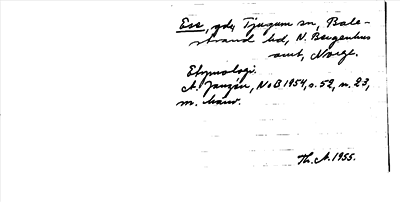 Ese, gdr Tjugum sn, Bale-
strand hd, N. Bergenhus
amt, Norge.
Etymologi.
A. Janzén, NoB 1954, s. 52, n. 23,
m. hänv.
Th. A. 1955.